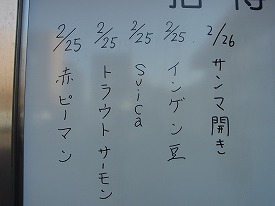 2/26 サンマ開き
2/25 インゲン豆
2/25 Suica
2/25 トラウトサーモン
2/25 赤ピーマン